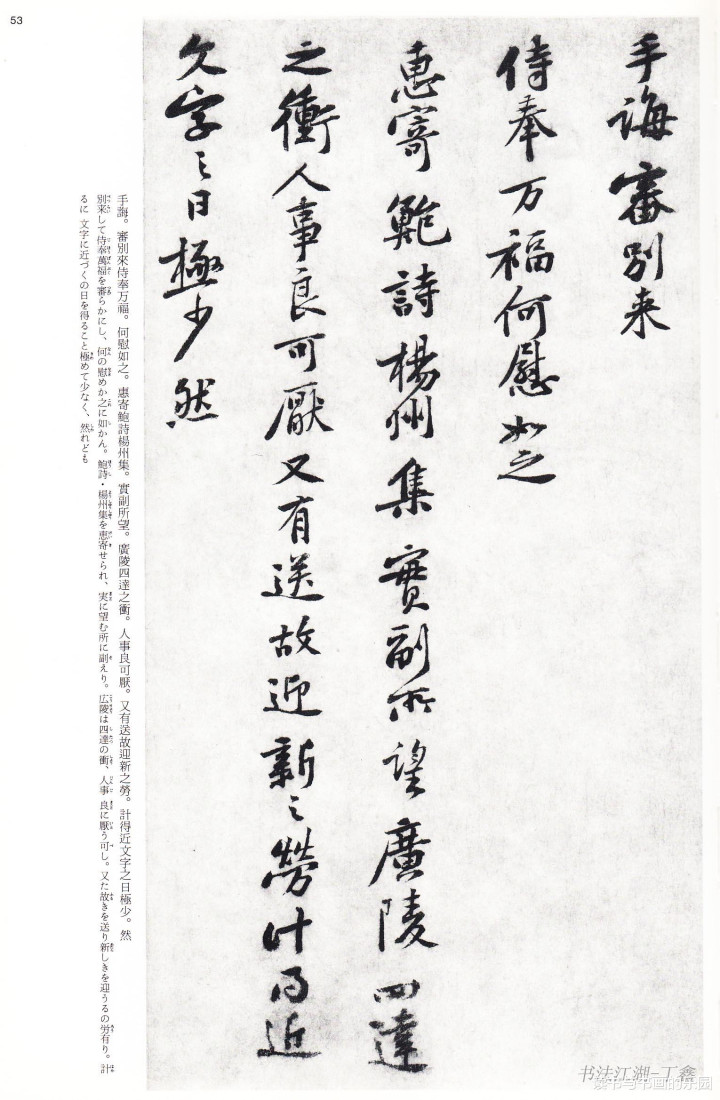 53
手誨審別来
侍奉万福何慰如之
惠寄鮑詩楊州集實副所望廣陵四達
之衝人事良可厭又有送故迎新之勞計得近
文字之日極少然
手誨。審別來侍奉万福。何慰如之。惠寄鮑詩楊州集。實副所望。廣陵四達之衝。人事良可厭。又有送故迎新之勞。計得近文字之日極少。然
別来して侍奉萬福を審らかにし、何の慰めか之に如かん。鮑詩・楊州集を惠寄せられ、実に望む所に副えり。広陵は四達の衝、人事良に厭う可し。又た故きを送り新しきを迎うるの労有り。計
るに文字に近づくの日を得ること極めて少なく、然れども
书法江湖-丁鑫
读书与书画的乐园